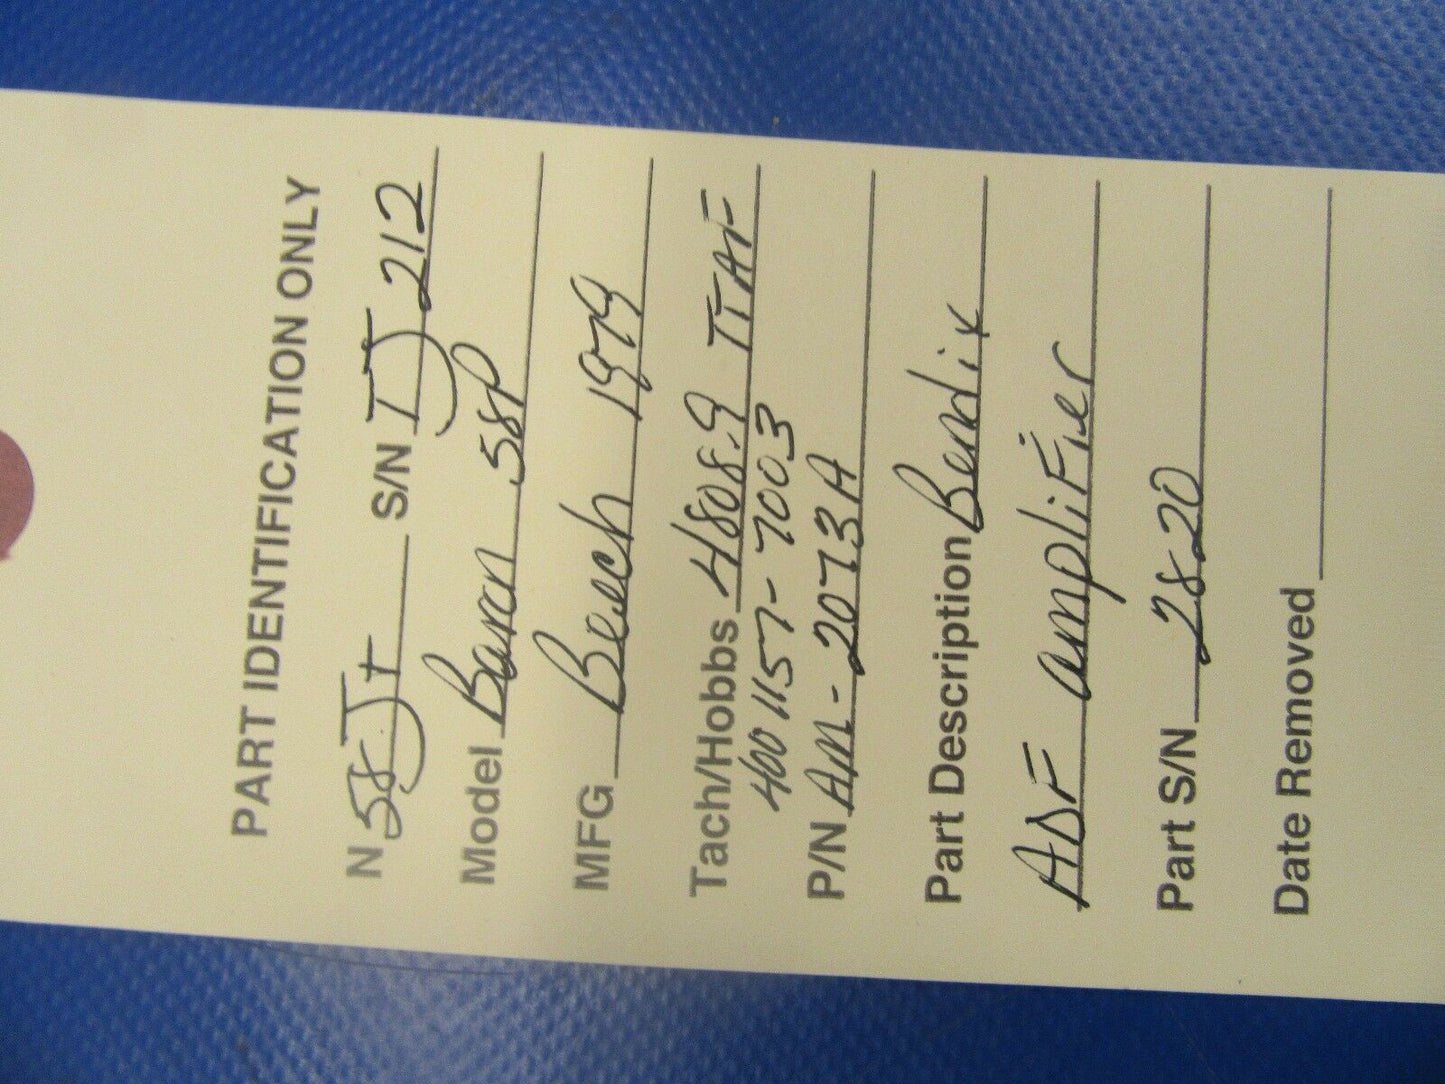 PART IDENTIFICATION ONLY
N 58Jt S/N TJ 212
Model Baran 58P
MFG Beech 1979
Tach/Hobbs 4808.9 TTAF
4001157-7003
P/N AM-2073A
Part Description Bendix
ADF ampliFier
Part S/N 2820
Date Removed